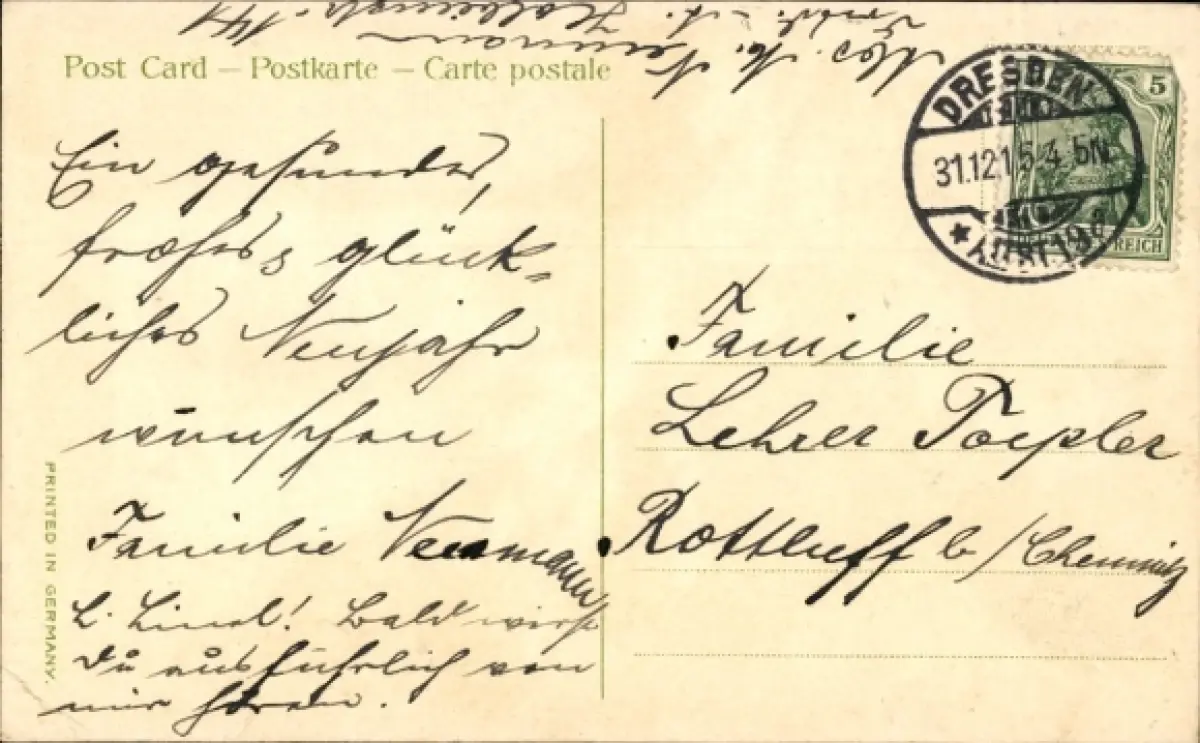 Post Card – Postkarte – Carte postale
Ein gesundes,
frohes & glück-
liches Neujahr
wünschen
Familie Neumann
L. Lina! Bald wirst
Du ausführlich von
mir hören.
PRINTED IN GERMANY.
DRESDEN
31.12.15 4-5N
ALTST. 19
5
REICH
Familie
Lehrer Toepler
Rottluff b/Chemnitz
Neumann